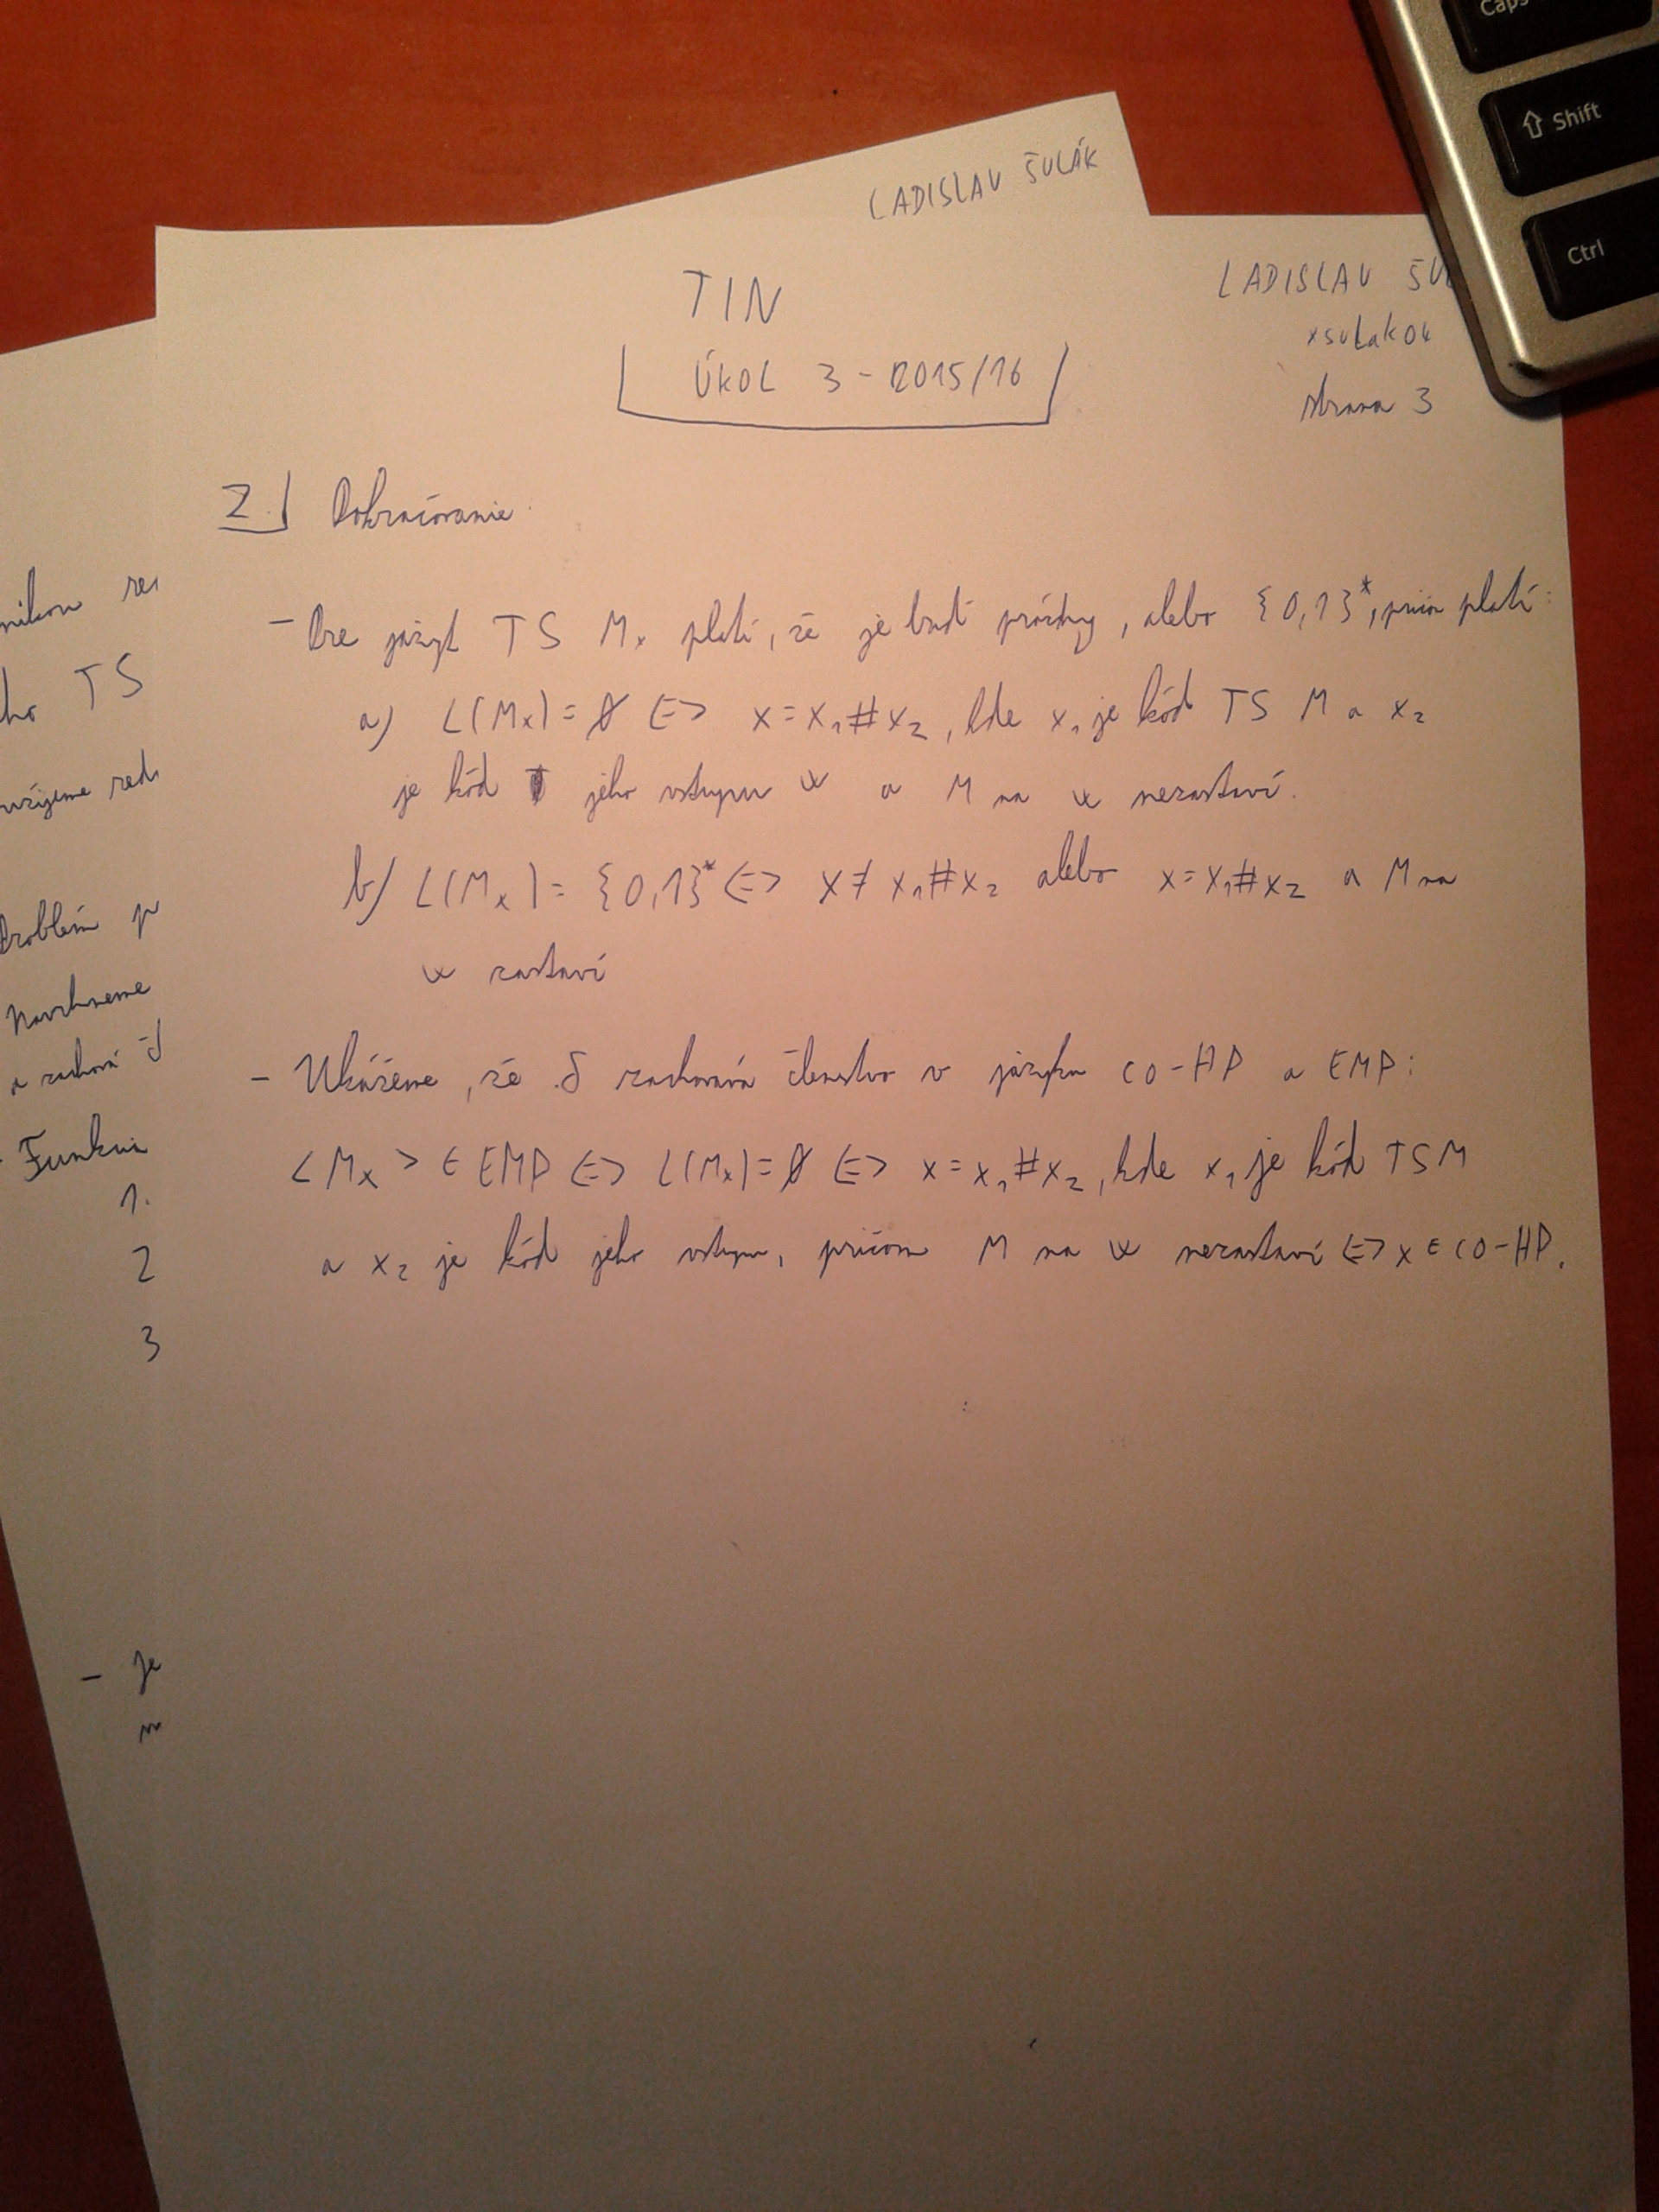 Caps
Shift
Ctrl
LADISLAV ŠULÁK
TIN
LADISLAV ŠU
ÚKOL 3 - 2015/16
xsulak04
strana 3
2.) Pokračovanie
- Pre jazyk TS Mx platí, že je buď prázdny, alebo {0,1}*, pričom platí:
a) L(Mx) = ∅ <=> x = x1#x2, kde x1 je kód TS M a x2
je kód jeho vstupu w a M na w nezastaví.
b) L(Mx) = {0,1}* <=> x ≠ x1#x2 alebo x = x1#x2 a M na
w zastaví
- Ukážeme, že δ zachováva členstvo v jazyku co-HP a EMP:
<Mx> ∈ EMP <=> L(Mx) = ∅ <=> x = x1#x2, kde x1 je kód TS M
a x2 je kód jeho vstupu, pričom M na w nezastaví <=> x ∈ co-HP.
TS
Problém
Navrhneme
a zachová
Funkcia
1.
2
3
- Je